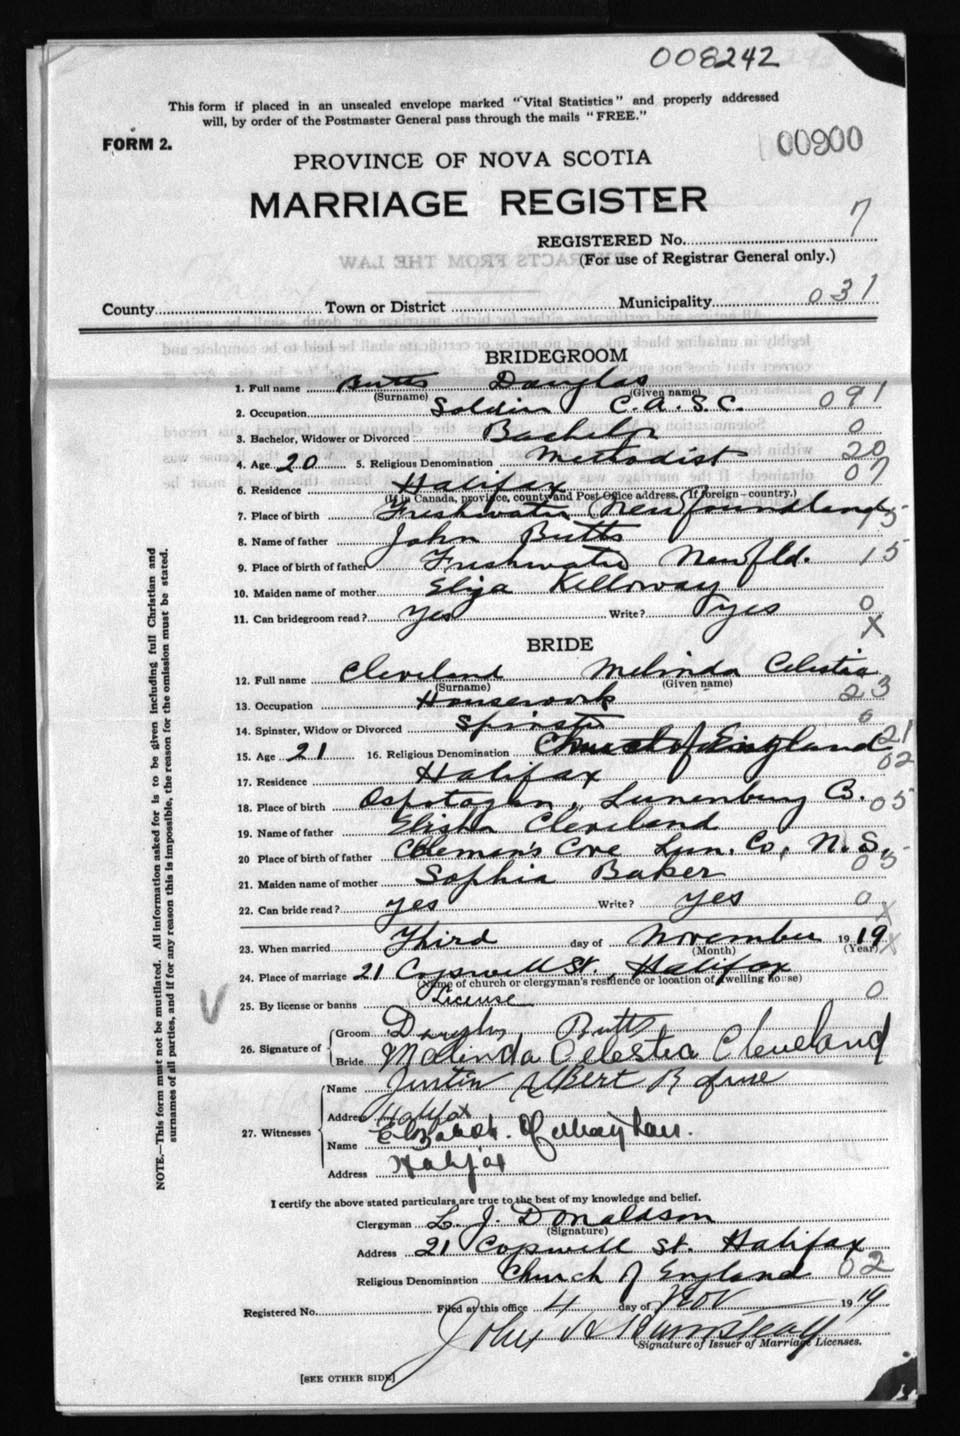 008242
This form if placed in an unsealed envelope marked "Vital Statistics" and properly addressed
will, by order of the Postmaster General pass through the mails "FREE."
FORM 2.
00900
PROVINCE OF NOVA SCOTIA
MARRIAGE REGISTER
REGISTERED No. 7
(For use of Registrar General only.)
County Town or District Municipality 031
BRIDEGROOM
1. Full name Butts Douglas
(Surname) (Given name)
2. Occupation Soldier C.A.S.C. 091
3. Bachelor, Widower or Divorced Bachelor 0
4. Age 20 5. Religious Denomination Methodist 20
6. Residence Halifax 07
(If in Canada, province, county and Post Office address. If foreign-country.)
7. Place of birth Freshwater Newfoundland 15
8. Name of father John Butts
9. Place of birth of father Freshwater Newfld. 15
10. Maiden name of mother Eliza Kelloway
11. Can bridegroom read? yes Write? yes 0
X
BRIDE
12. Full name Cleveland Melinda Celestia
(Surname) (Given name)
13. Occupation Housework 23
14. Spinster, Widow or Divorced Spinster 0
15. Age 21 16. Religious Denomination Church of England 21
02
17. Residence Halifax
18. Place of birth Aspotogan, Lunenburg Co. 05
19. Name of father Elisha Cleveland
20 Place of birth of father Cleman's Cove Lun. Co, N.S.
05
21. Maiden name of mother Sophia Baker
22. Can bride read? yes Write? yes 0
X
23. When married Third day of November 1919 X
(Month) (Year)
24. Place of marriage 21 Cogswell St., Halifax
(Name of church or clergyman's residence or location of dwelling house)
25. By license or banns License 0
V
26. Signature of Groom Douglas Butts
Bride Malinda Celestia Cleveland
27. Witnesses
Name Justin Albert
Address Halifax
Name
Address Halifax
I certify the above stated particulars are true to the best of my knowledge and belief.
Clergyman L. J. Donaldson
(Signature)
Address 21 Cogswell St. Halifax
Religious Denomination Church of England 02
Registered No. Filed at this office 4 day of Nov 1919
John
Signature of Issuer of Marriage Licenses.
[SEE OTHER SIDE]
NOTE.—This form must not be mutilated. All information asked for is to be given including full Christian and
surnames of all parties, and if for any reason this is impossible, the reason for the omission must be stated.